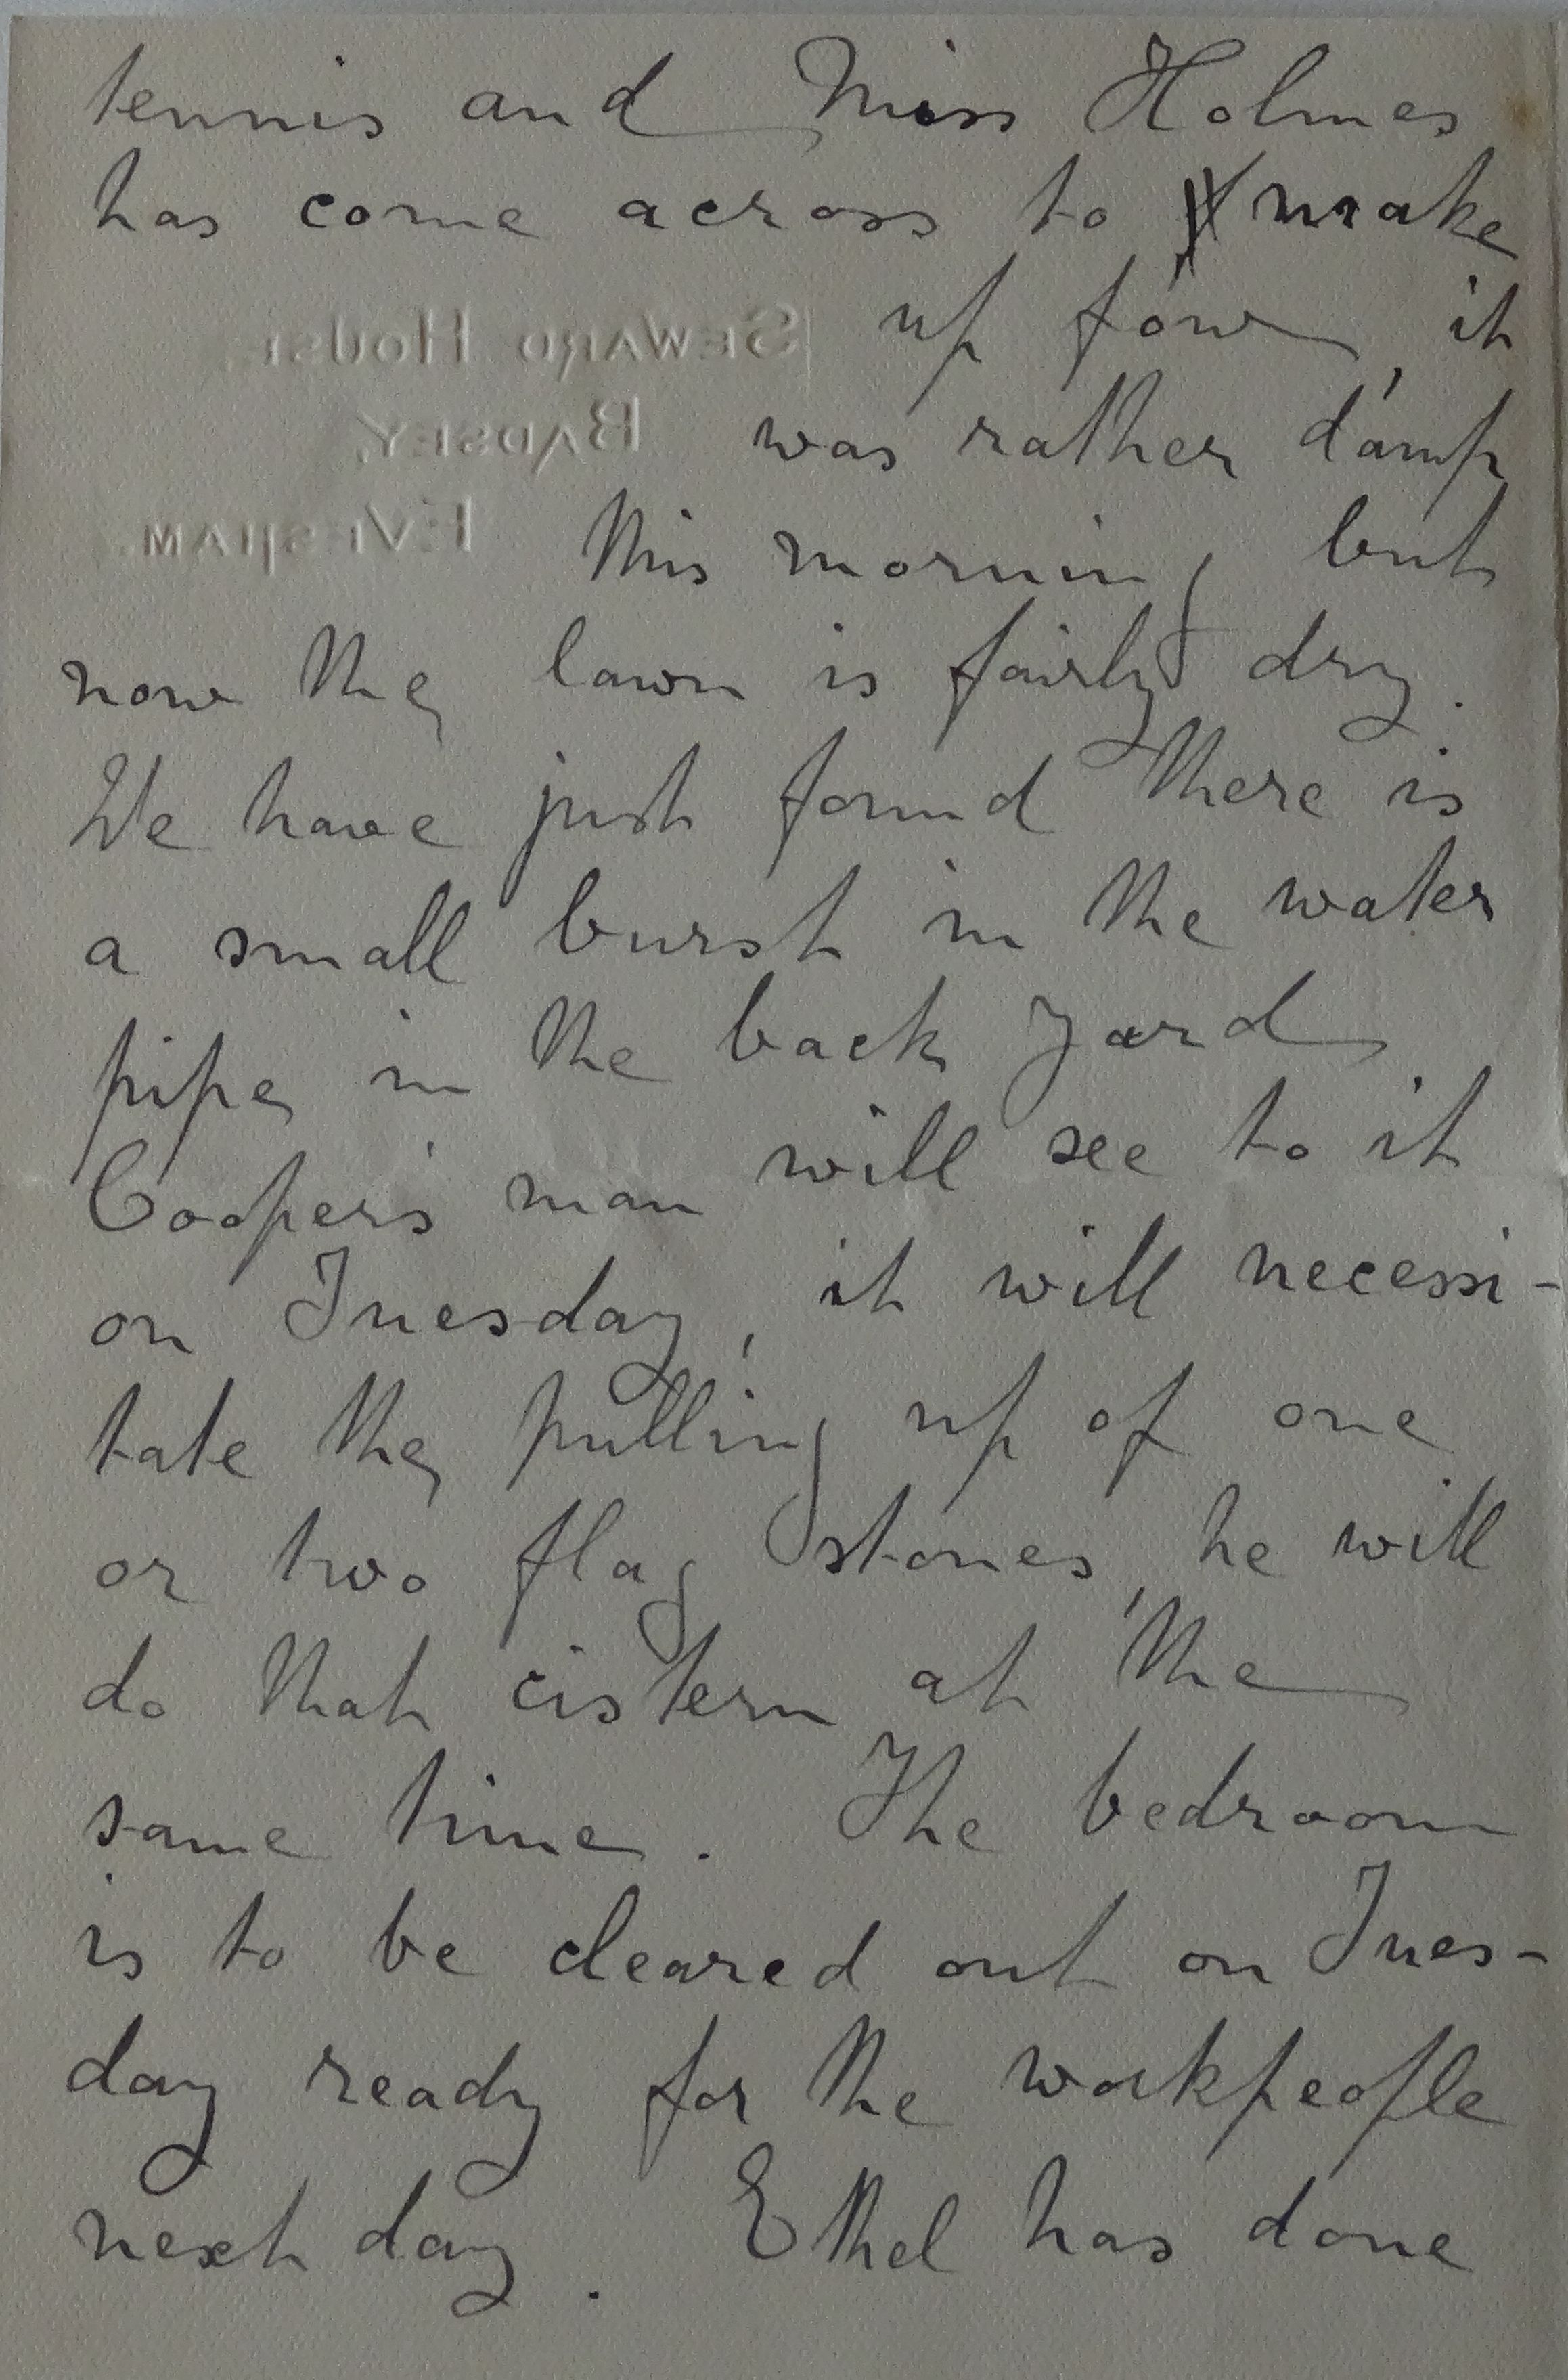 tennis and Miss Holmes
has come across to make
up four, it
SEWARD HOUSE,
BADSEY,
was rather damp
EVESHAM.
this morning but
now the lawn is fairly dry.
We have just found there is
a small burst in the water
pipe in the back yard
Cooper's man will see to it
on Tuesday, it will necessi-
tate the pulling up of one
or two flag stones, he will
do that cistern at the
same time. The bedroom
is to be cleared out on Tues-
day ready for the workpeople
next day. Ethel has done